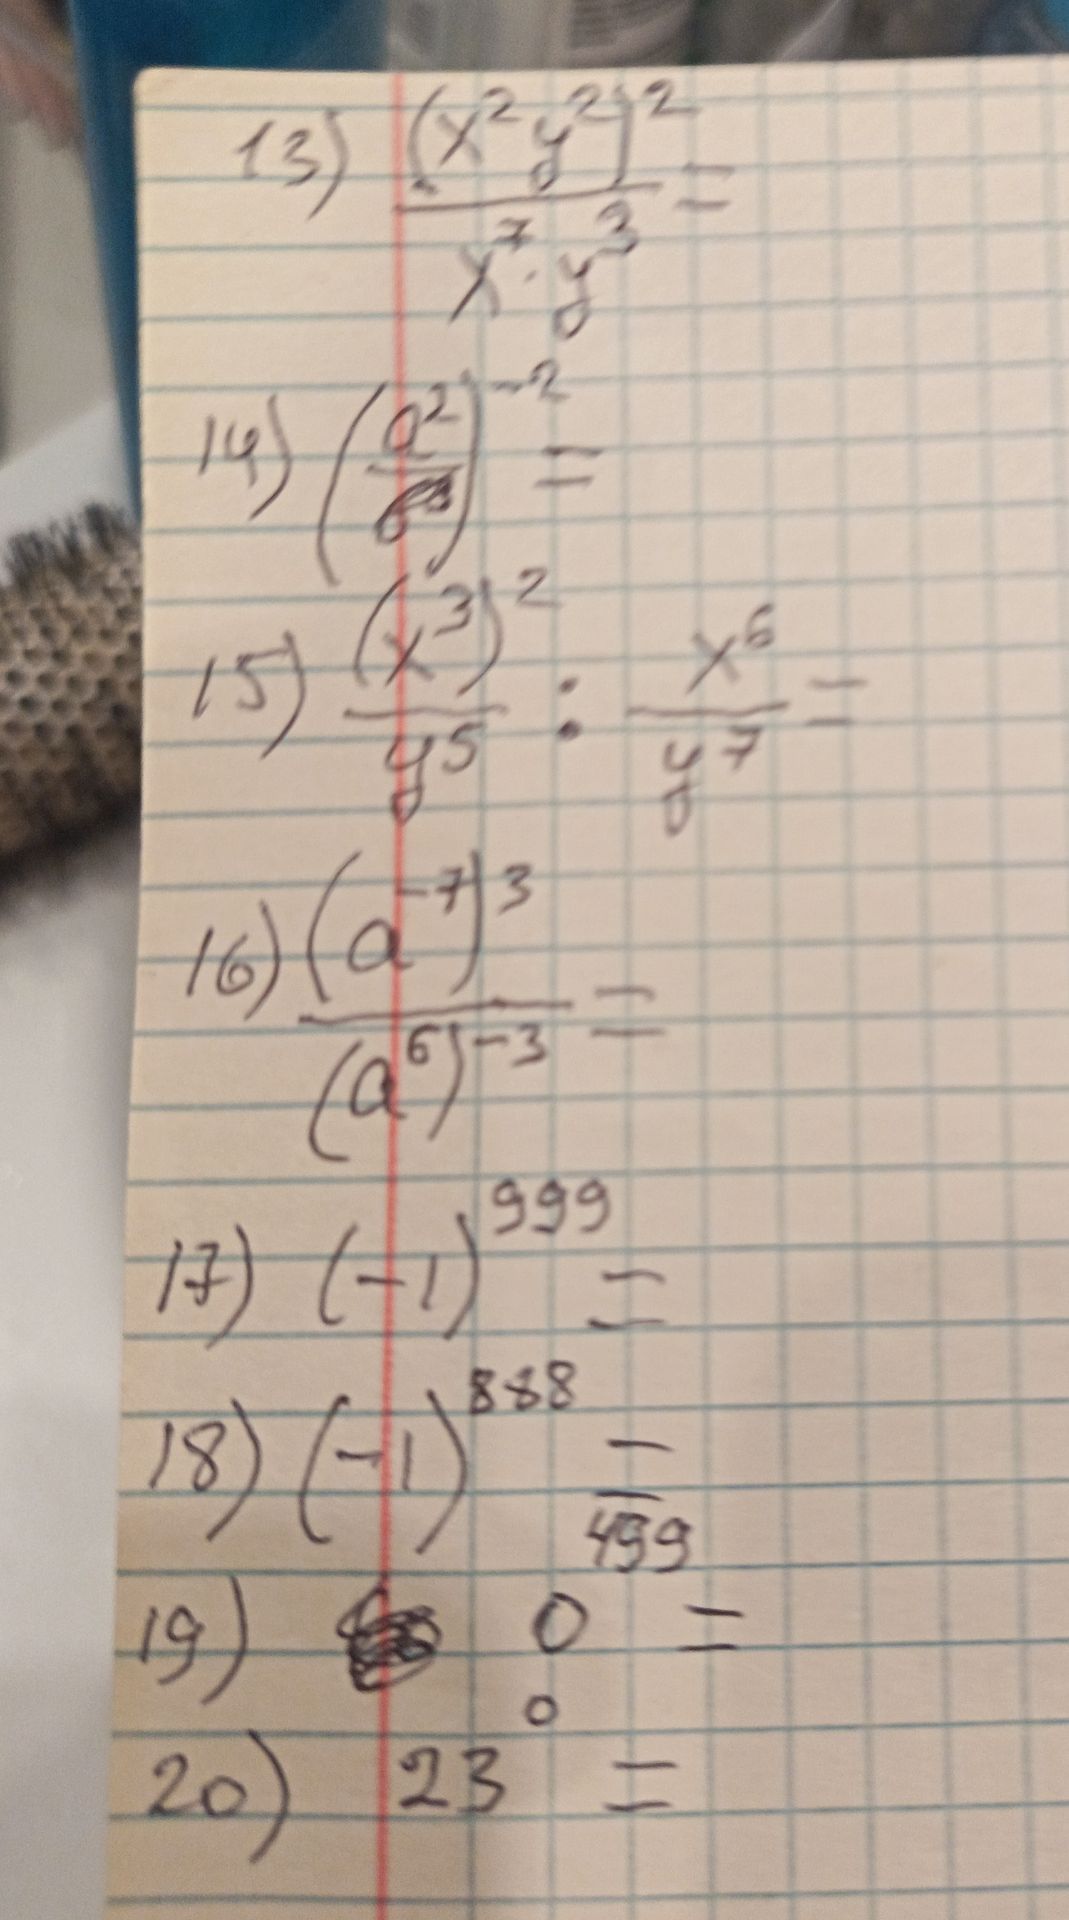 13) (x²y²)² / x⁷·y³ =
14) (a² / )⁻² =
15) (x³)² / y⁵ : x⁶ / y⁷ =
16) (a⁻⁷)³ / (a⁶)⁻³ =
17) (-1)⁹⁹⁹ =
18) (-1)⁸⁸⁸ =
19) 0⁴⁹⁹ =
20) 23⁰ =